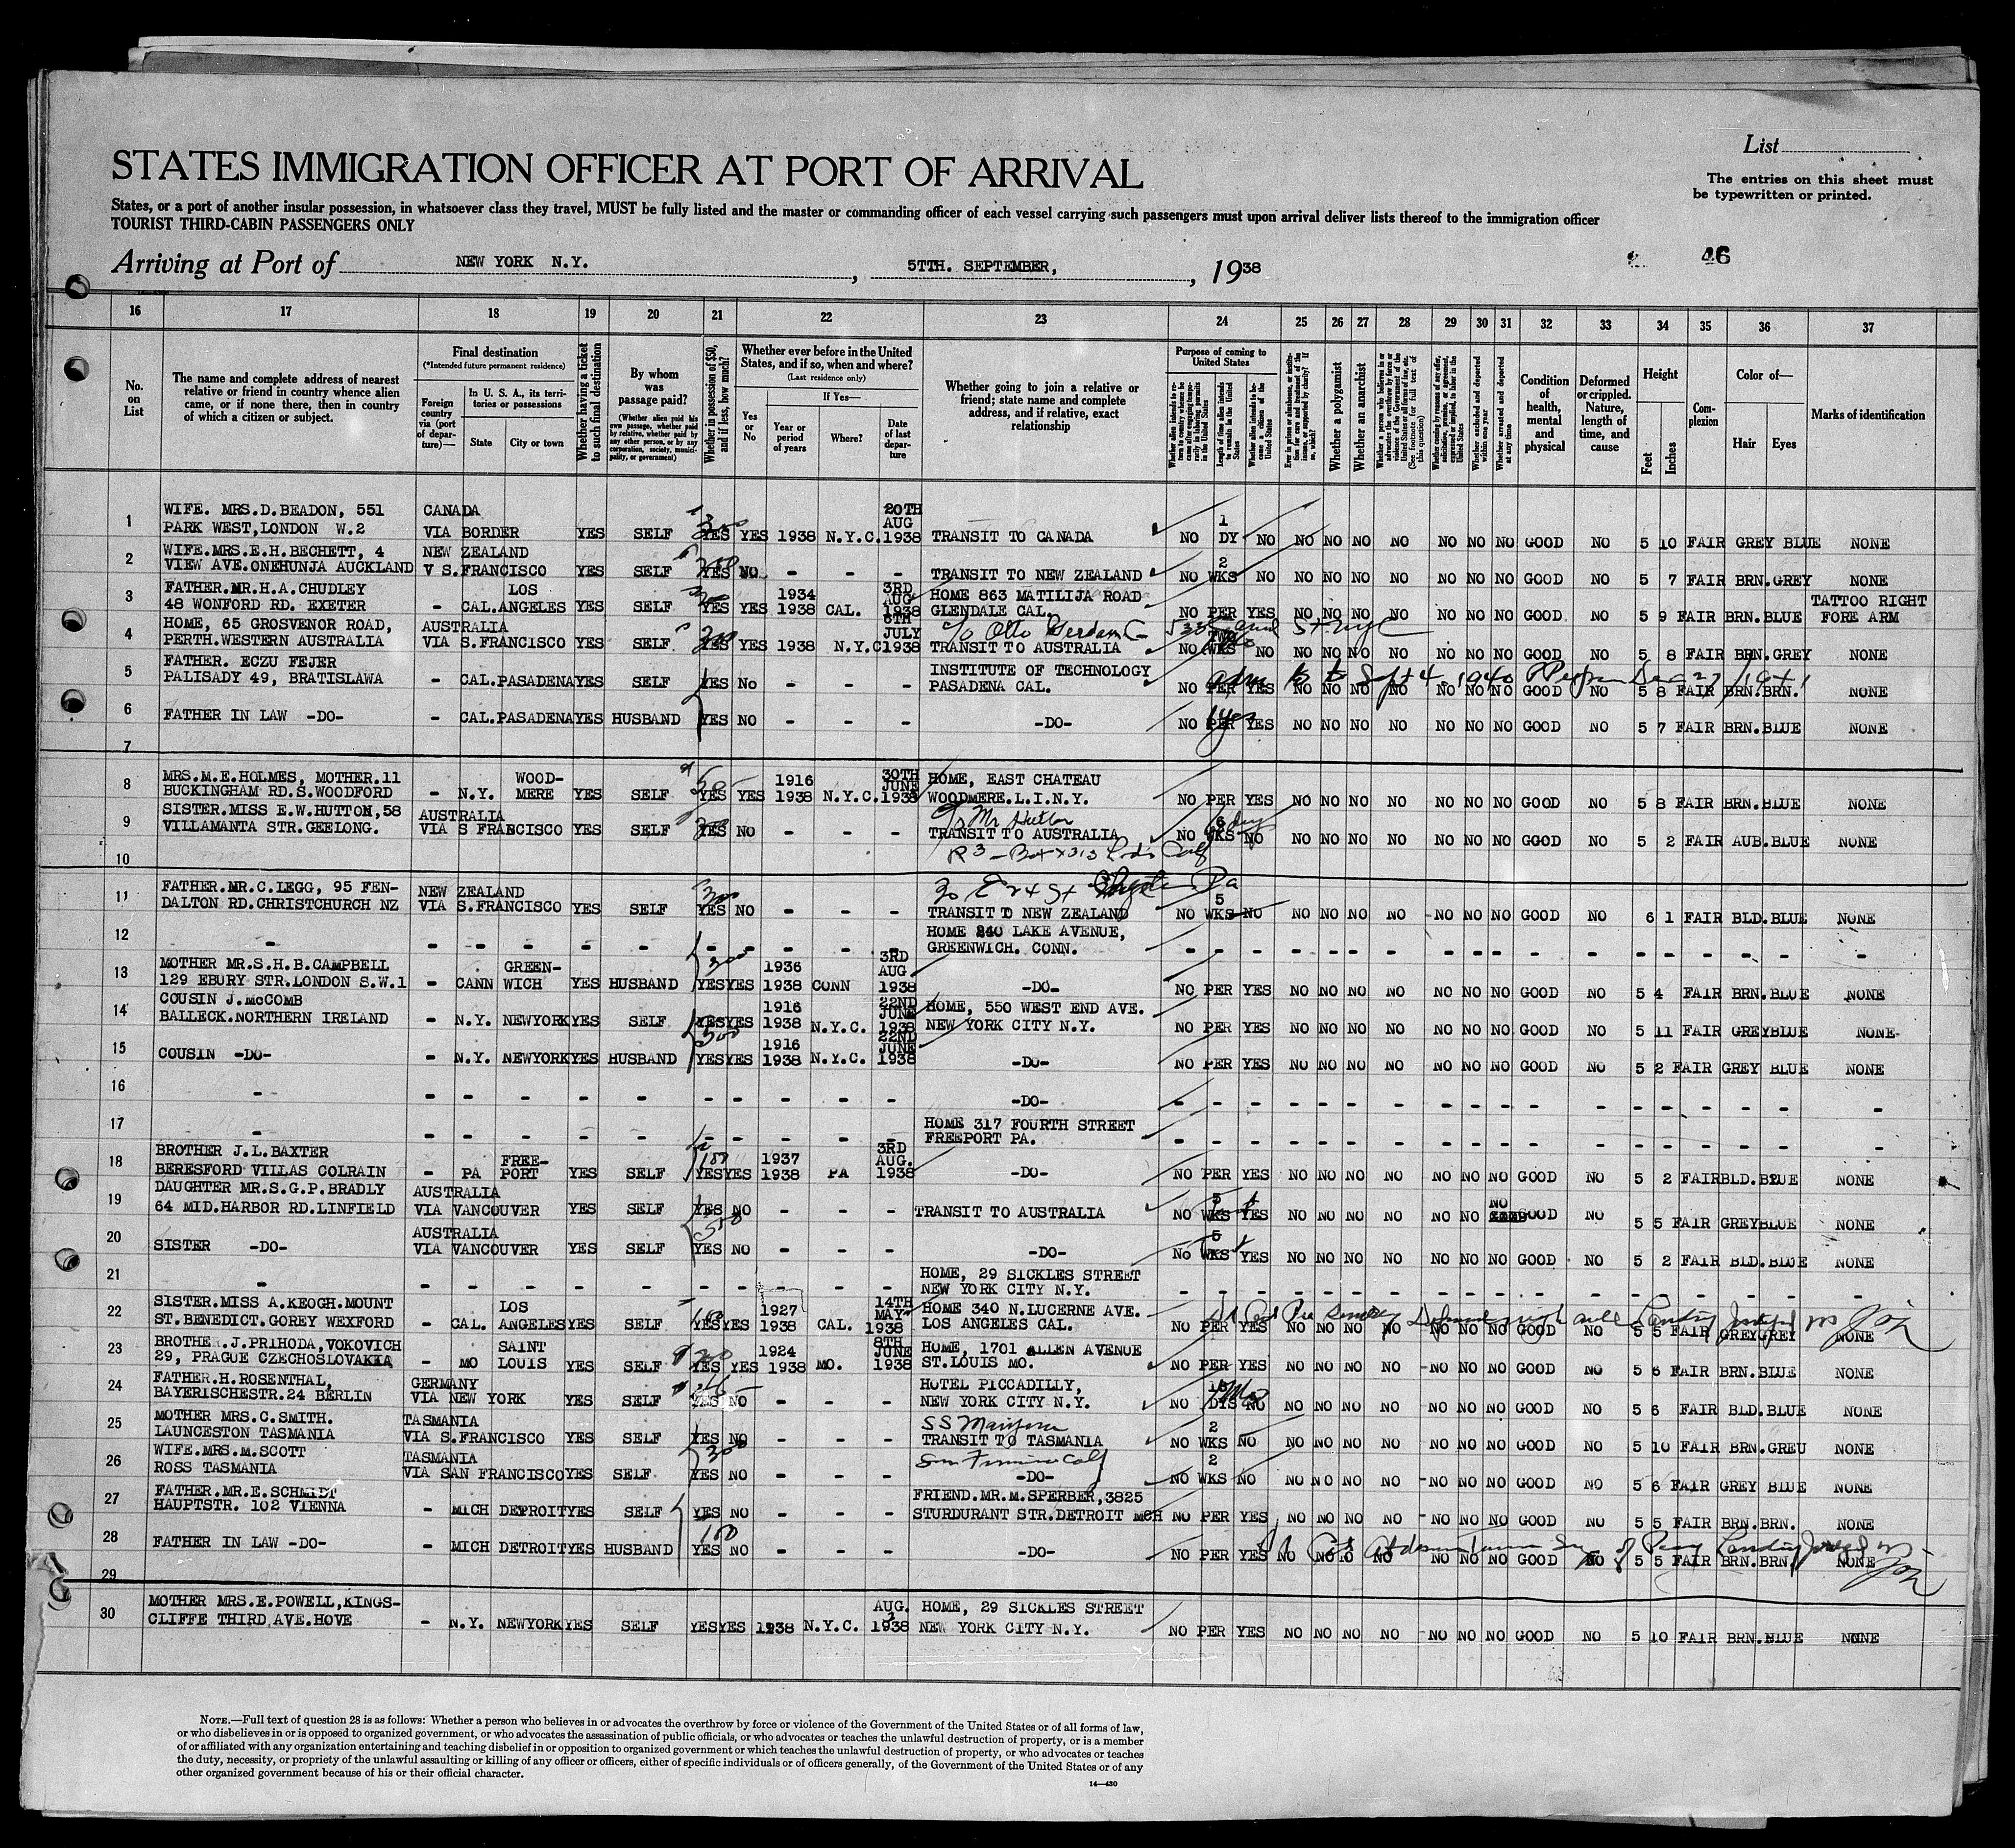 List
STATES IMMIGRATION OFFICER AT PORT OF ARRIVAL
The entries on this sheet must
be typewritten or printed.
States, or a port of another insular possession, in whatsoever class they travel, MUST be fully listed and the master or commanding officer of each vessel carrying such passengers must upon arrival deliver lists thereof to the immigration officer
TOURIST THIRD-CABIN PASSENGERS ONLY
Arriving at Port of NEW YORK N.Y. , 5TTH. SEPTEMBER, , 1938
46
16 17 18 19 20 21 22 23 24 25 26 27 28 29 30 31 32 33 34 35 36 37
No. on List
The name and complete address of nearest relative or friend in country whence alien came, or if none there, then in country of which a citizen or subject.
Final destination
(*Intended future permanent residence)
Foreign country via (port of departure)—
In U. S. A., its territories or possessions
State City or town
Whether having a ticket to such final destination
By whom was passage paid?
(Whether alien paid his own passage, whether paid by relative, whether paid by any other person, or by any corporation, society, municipality, or government)
Whether in possession of $50, and if less, how much?
Whether ever before in the United States, and if so, when and where?
(Last residence only)
Yes or No
If Yes—
Year or period of years
Where?
Date of last departure
Whether going to join a relative or friend; state name and complete address, and if relative, exact relationship
Purpose of coming to United States
Whether a polygamist
Whether an anarchist
Condition of health, mental and physical
Deformed or crippled. Nature, length of time, and cause
Height
Feet Inches
Complexion
Color of—
Hair Eyes
Marks of identification
1 WIFE. MRS.D.BEADON, 551 CANADA 20TH AUG
PARK WEST,LONDON W.2 VIA BORDER YES SELF YES YES 1938 N.Y.C. 1938 TRANSIT TO CANADA NO 1 DY NO NO NO NO NO NO NO NO GOOD NO 5 10 FAIR GREY BLUE NONE
2 WIFE.MRS.E.H.BECHETT, 4 NEW ZEALAND
VIEW AVE.ONEHUNJA AUCKLAND V S.FRANCISCO YES SELF YES NO - - - TRANSIT TO NEW ZEALAND NO 2 WKS NO NO NO NO NO NO NO NO GOOD NO 5 7 FAIR BRN.GREY NONE
3 FATHER.MR.H.A.CHUDLEY LOS 1934 3RD AUG HOME 863 MATILIJA ROAD TATTOO RIGHT
48 WONFORD RD. EXETER - CAL.ANGELES YES SELF YES YES 1938 CAL. 1938 GLENDALE CAL. NO PER YES NO NO NO NO NO NO NO GOOD NO 5 9 FAIR BRN.BLUE FORE ARM
4 HOME, 65 GROSVENOR ROAD, AUSTRALIA 6TH JULY c/o Otto Gerdam C
PERTH.WESTERN AUSTRALIA VIA S.FRANCISCO YES SELF YES YES 1938 N.Y.C 1938 TRANSIT TO AUSTRALIA NO TWO WKS NO NO NO NO NO NO NO NO GOOD NO 5 8 FAIR BRN.GREY NONE
5 FATHER. ECZU FEJER INSTITUTE OF TECHNOLOGY
PALISADY 49, BRATISLAWA - CAL.PASADENA YES SELF YES NO - - - PASADENA CAL. NO PER YES NO NO NO NO NO NO NO GOOD NO 5 8 FAIR BRN.BRN. NONE
Sept 4-1940
6 FATHER IN LAW -DO- - CAL.PASADENA YES HUSBAND YES NO - - - -DO- NO PER YES NO NO NO NO NO NO NO GOOD NO 5 7 FAIR BRN.BLUE NONE
7
8 MRS.M.E.HOLMES, MOTHER.11 WOOD- 1916 30TH JUNE HOME, EAST CHATEAU
BUCKINGHAM RD.S.WOODFORD - N.Y. MERE YES SELF YES YES 1938 N.Y.C. 1938 WOODMERE.L.I.N.Y. NO PER YES NO NO NO NO NO NO NO GOOD NO 5 8 FAIR BRN.BLUE NONE
9 SISTER.MISS E.W.HUTTON,58 AUSTRALIA
VILLAMANTA STR.GEELONG. VIA S FRANCISCO YES SELF YES NO - - - TRANSIT TO AUSTRALIA NO 6 WKS NO NO NO NO NO NO NO NO GOOD NO 5 2 FAIR AUB.BLUE NONE
10
11 FATHER.MR.C.LEGG, 95 FEN- NEW ZEALAND 300
DALTON RD.CHRISTCHURCH NZ VIA S.FRANCISCO YES SELF YES NO - - - TRANSIT TO NEW ZEALAND NO 5 WKS NO NO NO NO NO NO NO NO GOOD NO 6 1 FAIR BLD.BLUE NONE
12 - HOME 240 LAKE AVENUE,
GREENWICH. CONN.
13 MOTHER MR.S.H.B.CAMPBELL GREEN- 300 1936 3RD AUG
129 EBURY STR.LONDON S.W.1 - CANN WICH YES HUSBAND YES YES 1938 CONN 1938 -DO- NO PER YES NO NO NO NO NO NO NO GOOD NO 5 4 FAIR BRN.BLUE NONE
14 COUSIN J.McCOMB 1916 22ND JUNE HOME, 550 WEST END AVE.
BALLECK.NORTHERN IRELAND - N.Y. NEWYORK YES SELF YES YES 1938 N.Y.C. 1938 NEW YORK CITY N.Y. NO PER YES NO NO NO NO NO NO NO GOOD NO 5 11 FAIR GREY BLUE NONE
15 500 1916 22ND JUNE
COUSIN -DO- - N.Y. NEWYORK YES HUSBAND YES YES 1938 N.Y.C. 1938 -DO- NO PER YES NO NO NO NO NO NO NO GOOD NO 5 2 FAIR GREY BLUE NONE
16 - -DO-
17 - HOME 317 FOURTH STREET
FREEPORT PA.
18 BROTHER J.L.BAXTER FREE- 100 1937 3RD AUG.
BERESFORD VILLAS COLRAIN - PA PORT YES SELF YES YES 1938 PA 1938 -DO- NO PER YES NO NO NO NO NO NO NO GOOD NO 5 2 FAIR BLD.BLUE NONE
19 DAUGHTER MR.S.G.P.BRADLY AUSTRALIA
64 MID.HARBOR RD.LINFIELD VIA VANCOUVER YES SELF YES NO - - - TRANSIT TO AUSTRALIA NO 5 WKS YES NO NO NO NO NO NO NO GOOD NO 5 5 FAIR GREY BLUE NONE
20 AUSTRALIA 550
SISTER -DO- VIA VANCOUVER YES SELF YES NO - - - -DO- NO 5 WKS YES NO NO NO NO NO NO NO GOOD NO 5 2 FAIR BLD.BLUE NONE
21 - HOME, 29 SICKLES STREET
NEW YORK CITY N.Y.
22 SISTER.MISS A.KEOGH.MOUNT LOS 1927 14TH MAY HOME 340 N.LUCERNE AVE.
ST.BENEDICT.GOREY WEXFORD - CAL. ANGELES YES SELF YES YES 1938 CAL. 1938 LOS ANGELES CAL. NO PER YES NO NO NO NO NO NO NO GOOD NO 5 5 FAIR GREY GREY NONE
23 BROTHER.J.PRIHODA,VOKOVICH SAINT 1924 8TH JUNE HOME, 1701 ALLEN AVENUE
29, PRAGUE CZECHOSLOVAKIA - MO LOUIS YES SELF YES YES 1938 MO. 1938 ST.LOUIS MO. NO PER YES NO NO NO NO NO NO NO GOOD NO 5 6 FAIR BRN.BLUE NONE
24 FATHER.H.ROSENTHAL, GERMANY HOTEL PICCADILLY,
BAYERISCHESTR.24 BERLIN VIA NEW YORK YES SELF YES NO - - - NEW YORK CITY N.Y. NO DYS NO NO NO NO NO NO NO NO GOOD NO 5 6 FAIR BLD.BLUE NONE
25 MOTHER MRS.C.SMITH. TASMANIA SS Mariposa
LAUNCESTON TASMANIA VIA S.FRANCISCO YES SELF YES NO - - - TRANSIT TO TASMANIA NO 2 WKS NO NO NO NO NO NO NO NO GOOD NO 5 10 FAIR BRN.GREU NONE
26 WIFE.MRS.M.SCOTT TASMANIA 300 San Francisco Calf
ROSS TASMANIA VIA SAN FRANCISCO YES SELF YES NO - - - -DO- NO 2 WKS NO NO NO NO NO NO NO NO GOOD NO 5 6 FAIR GREY BLUE NONE
27 FATHER.MR.E.SCHMIDT FRIEND.MR.M.SPERBER,3825
HAUPTSTR. 102 VIENNA - MICH DETROIT YES SELF YES NO - - - STURDURANT STR.DETROIT MCH NO PER YES NO NO NO NO NO NO NO GOOD NO 5 5 FAIR BRN.BRN. NONE
28 100
FATHER IN LAW -DO- - MICH DETROIT YES HUSBAND YES NO - - - -DO- NO PER YES NO NO NO NO NO NO NO GOOD NO 5 5 FAIR BRN.BRN NONE
29
30 MOTHER MRS.E.POWELL,KINGS- AUG. 3 HOME, 29 SICKLES STREET
CLIFFE THIRD AVE.HOVE - N.Y. NEWYORK YES SELF YES YES 1938 N.Y.C. 1938 NEW YORK CITY N.Y. NO PER YES NO NO NO NO NO NO NO GOOD NO 5 10 FAIR BRN.BLUE NONE
NOTE.—Full text of question 28 is as follows: Whether a person who believes in or advocates the overthrow by force or violence of the Government of the United States or of all forms of law,
or who disbelieves in or is opposed to organized government, or who advocates the assassination of public officials, or who advocates or teaches the unlawful destruction of property, or is a member
of or affiliated with any organization entertaining and teaching disbelief in or opposition to organized government or which teaches the unlawful destruction of property, or who advocates or teaches
the duty, necessity, or propriety of the unlawful assaulting or killing of any officer or officers, either of specific individuals or of officers generally, of the Government of the United States or of any
other organized government because of his or their official character.
14—430